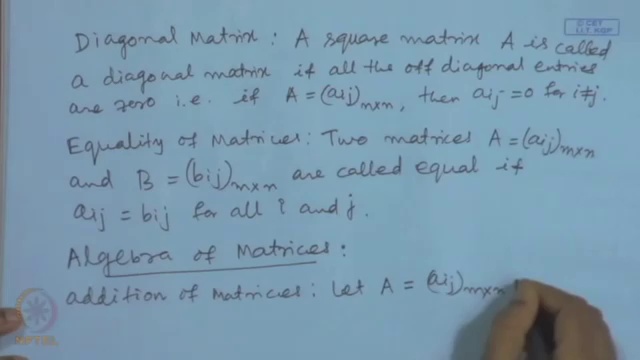 © CET
I.I.T. KGP
Diagonal Matrix : A square matrix A is called
a diagonal matrix if all the off diagonal entries
are zero i.e. if A = (aij)n×n, then aij = 0 for i≠j.
Equality of Matrices: Two matrices A = (aij)m×n
and B = (bij)m×n are called equal if
aij = bij for all i and j.
Algebra of Matrices:
addition of Matrices: Let A = (aij)m×n
NPTEL